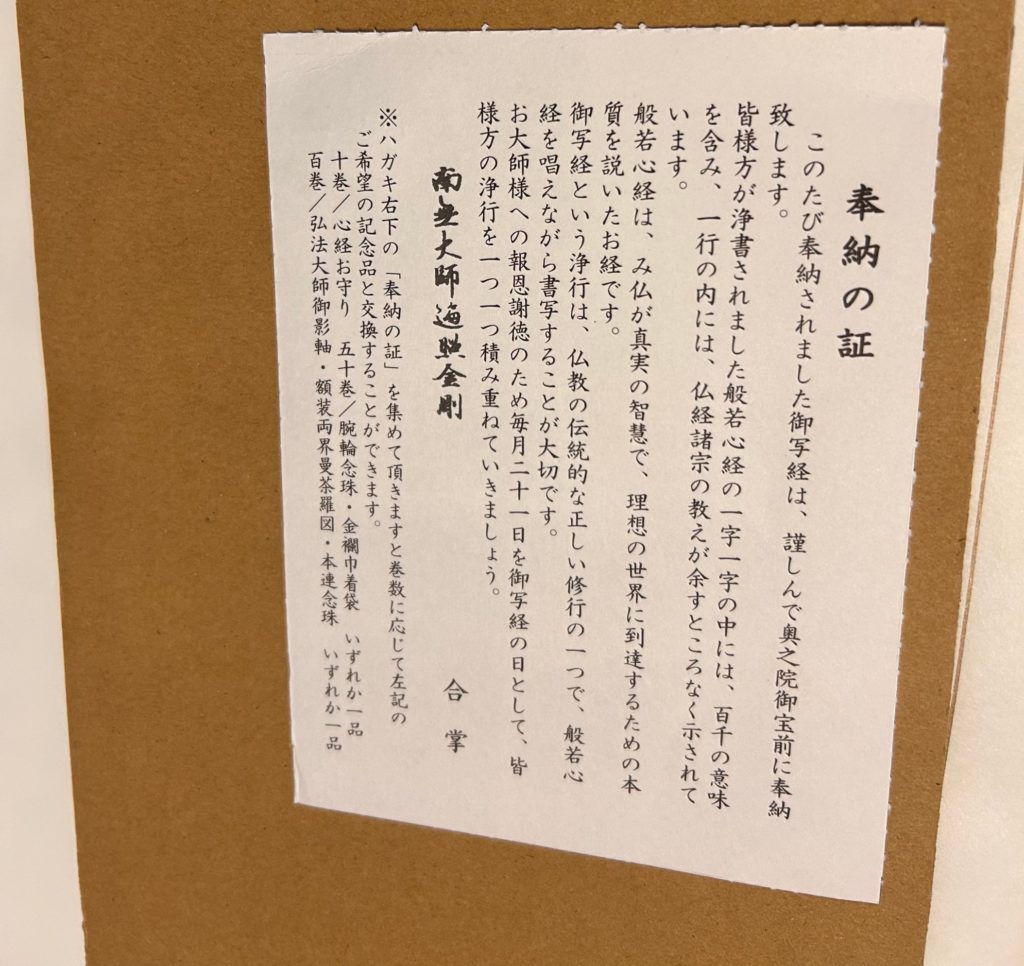 奉納の証
このたび奉納されました御写経は、謹しんで奥之院御宝前に奉納
致します。
皆様方が浄書されました般若心経の一字一字の中には、百千の意味
を含み、一行の内には、仏経諸宗の教えが余すところなく示されて
います。
般若心経は、み仏が真実の智慧で、理想の世界に到達するための本
質を説いたお経です。
御写経という浄行は、仏教の伝統的な正しい修行の一つで、般若心
経を唱えながら書写することが大切です。
お大師様への報恩謝徳のため毎月二十一日を御写経の日として、皆
様方の浄行を一つ一つ積み重ねていきましょう。
南無大師遍照金剛 合掌
※ハガキ右下の「奉納の証」を集めて頂きますと巻数に応じて左記の
ご希望の記念品と交換することができます。
十巻／心経お守り 五十巻／腕輪念珠・金襴巾着袋 いずれか一品
百巻／弘法大師御影軸・額装両界曼荼羅図・本連念珠 いずれか一品